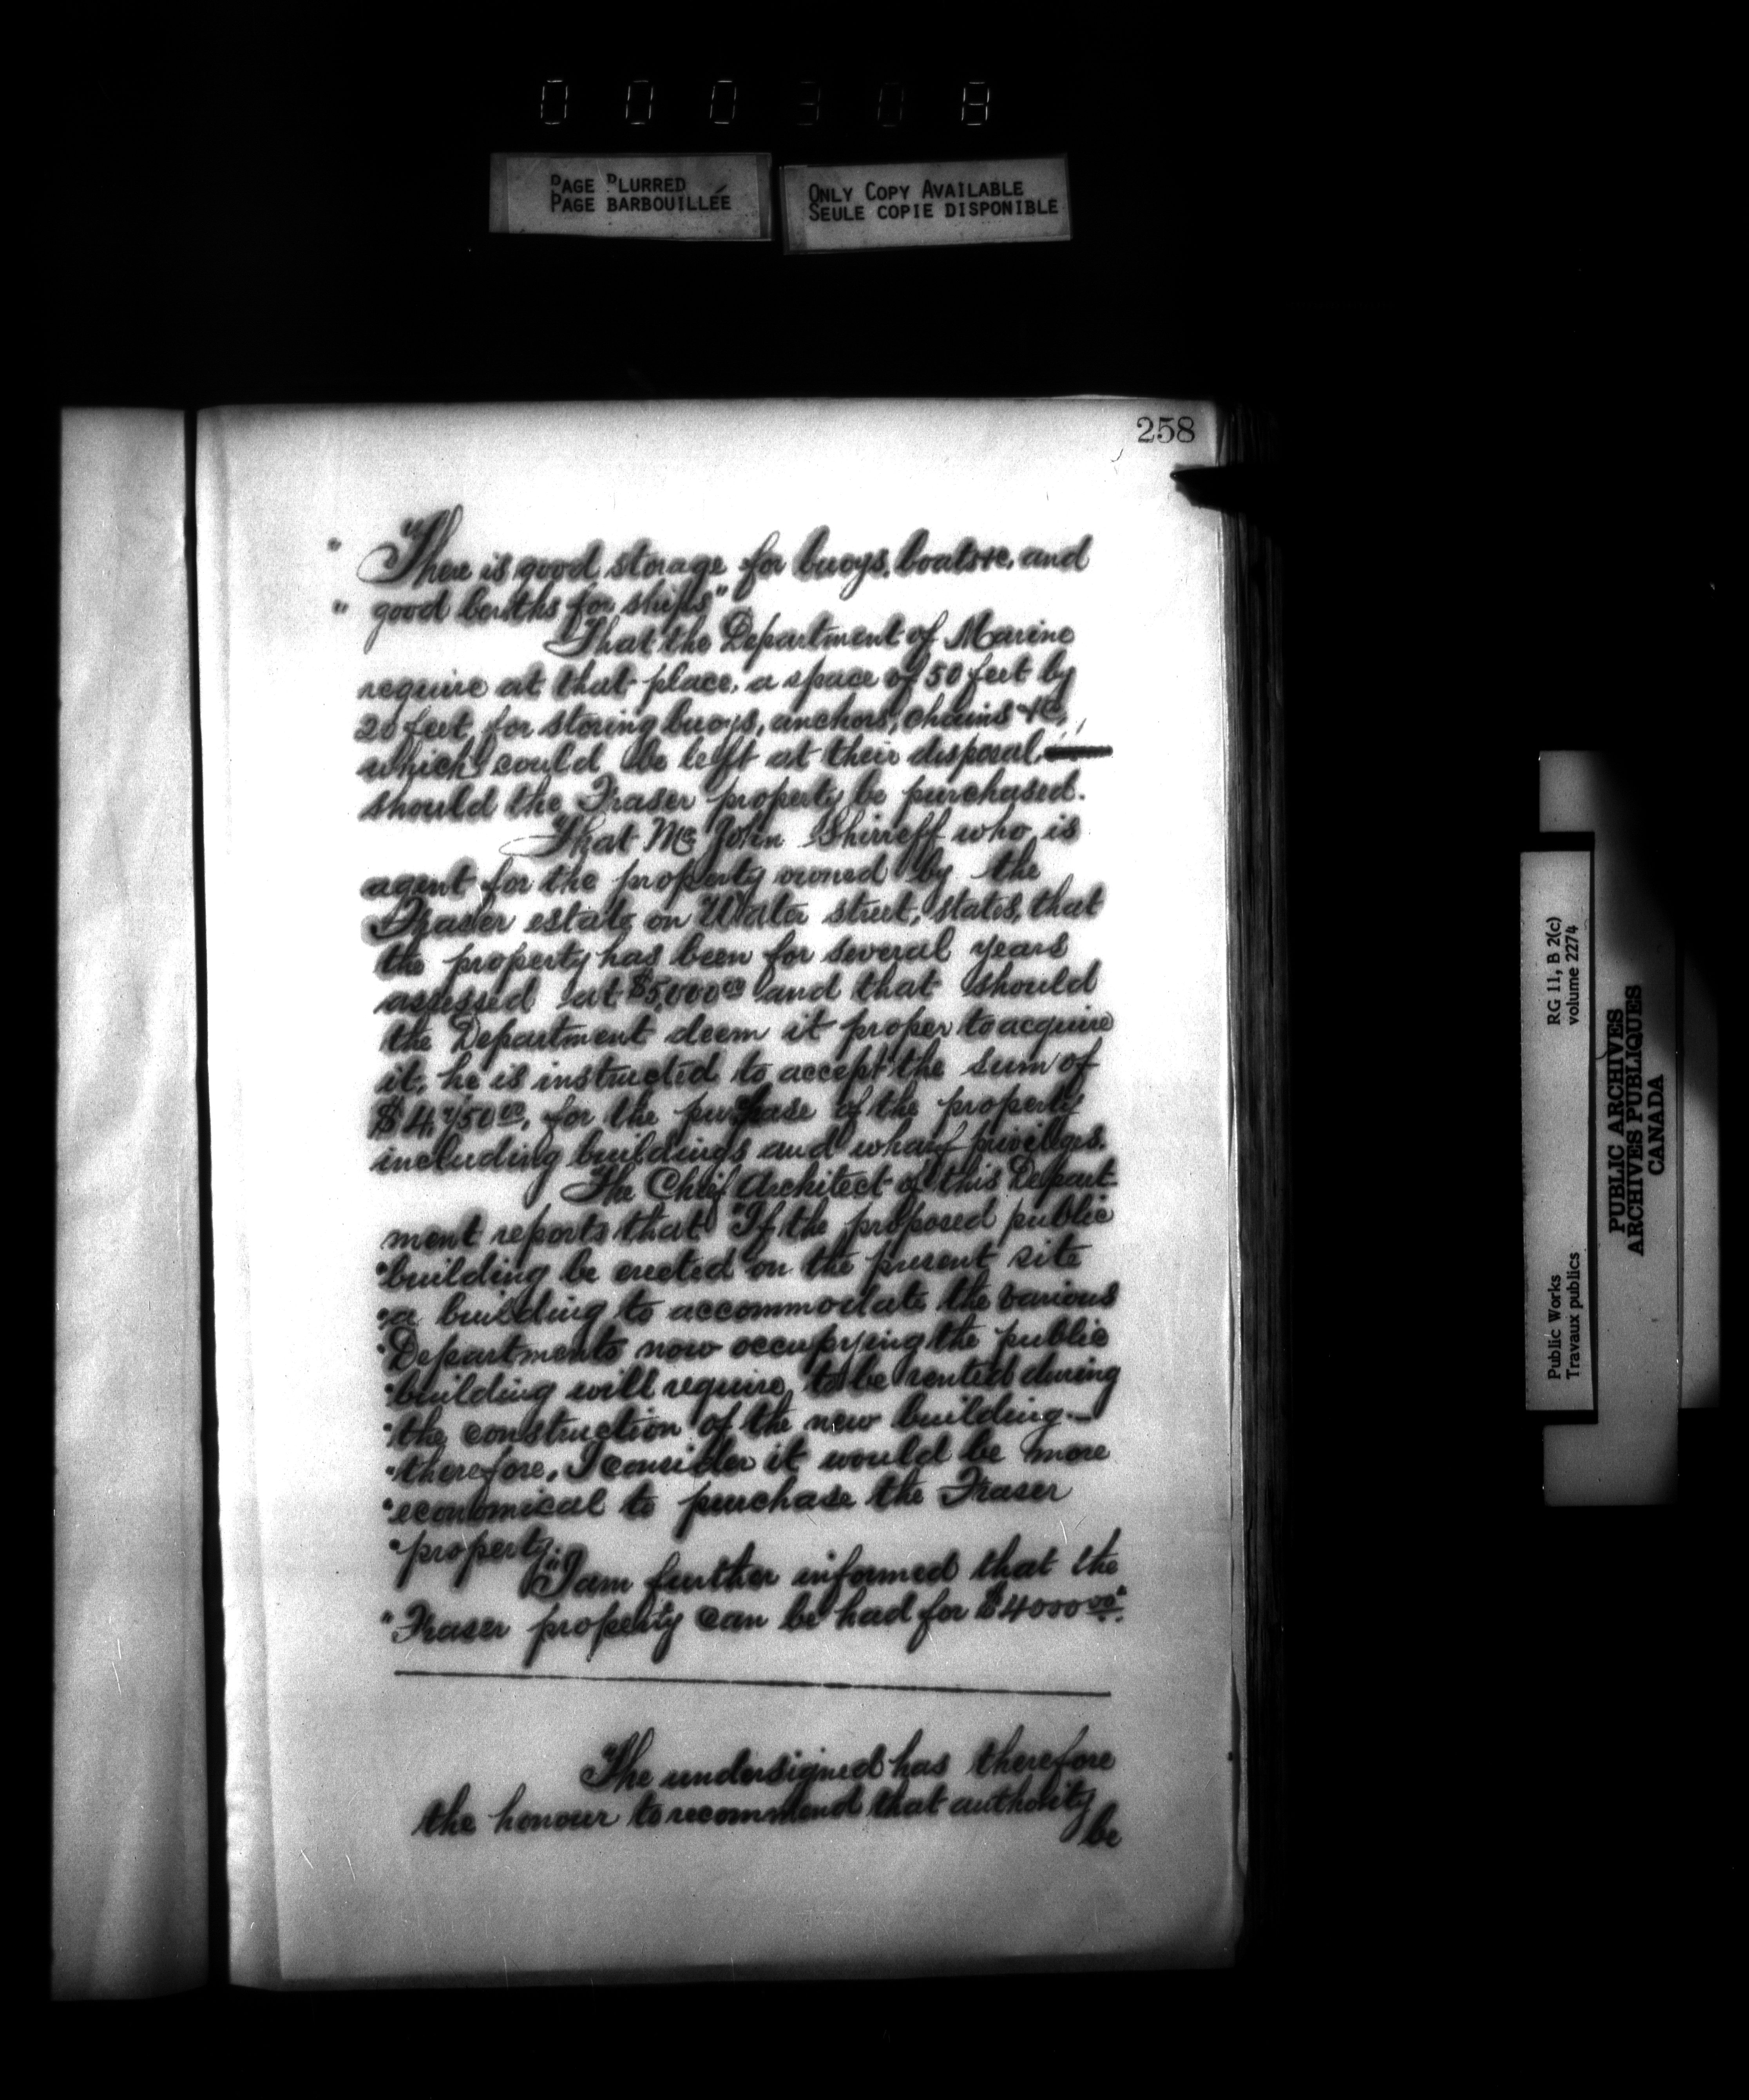 000308
PAGE BLURRED
PAGE BARBOUILLÉE
ONLY COPY AVAILABLE
SEULE COPIE DISPONIBLE
258
" "There is good storage for buoys, boats &c, and
" good berths for ships"
That the Department of Marine
require at that place, a space of 50 feet by
20 feet, for storing buoys, anchors, chains &c,
which could be left at their disposal,
should the Fraser property be purchased.
That Mr John Shirreff who is
agent for the property owned by the
Fraser estate on Water street, states, that
the property has been for several years
assessed at $5,000.00 and that should
the Department deem it proper to acquire
it, he is instructed to accept the sum of
$4,750.00, for the purchase of the property
including buildings and wharf privileges.
The Chief Architect of this Depart-
ment reports that "If the proposed public
"building be erected on the present site
"a building to accommodate the various
"Departments now occupying the public
"building will require to be rented during
"the construction of the new building —
"therefore, I consider it would be more
"economical to purchase the Fraser
"property."
"I am further informed that the
"Fraser property can be had for $4000.00".
The undersigned has therefore
the honour to recommend that authority
be
Public Works
Travaux publics
RG 11, B 2(c)
volume 2274
PUBLIC ARCHIVES
ARCHIVES PUBLIQUES
CANADA